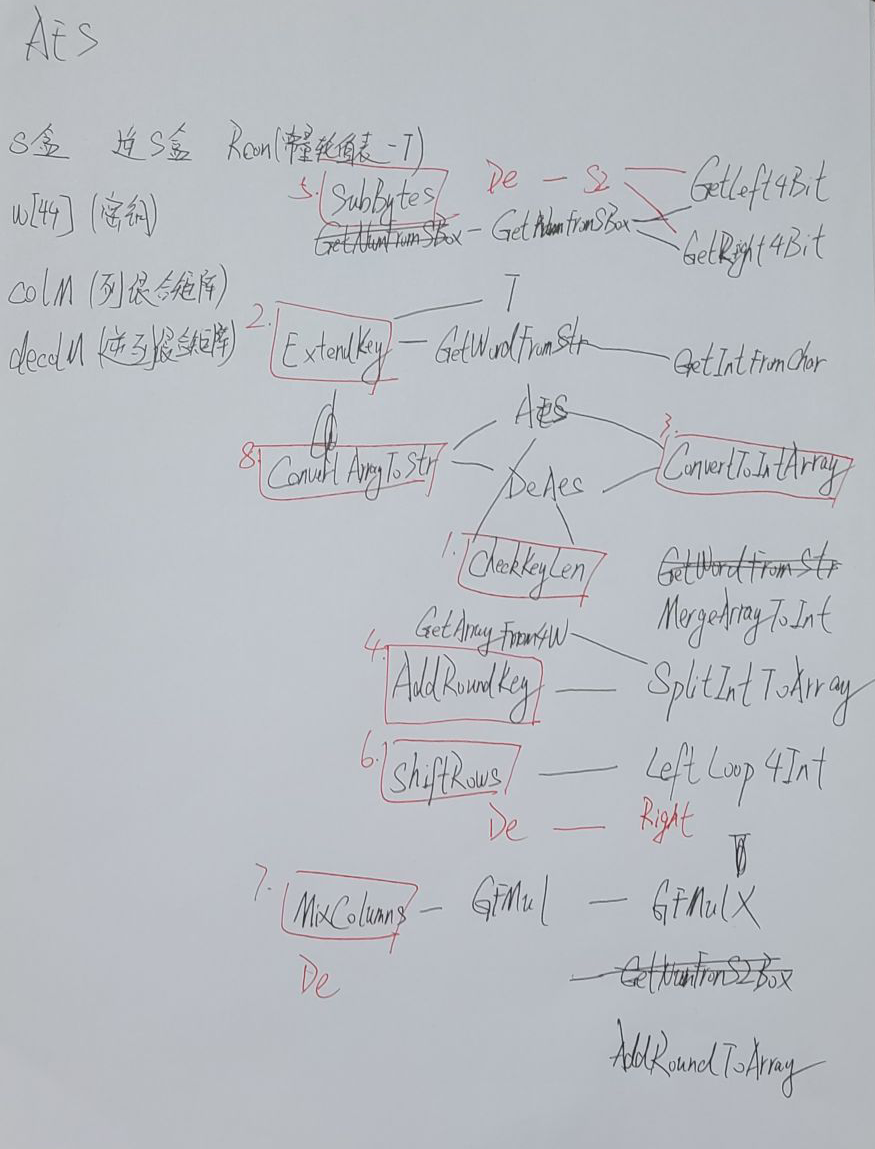 AES
S盒 逆S盒 Rcon(常量轮值表-T)
5. SubBytes De - S2 GetLeft4Bit
GetNumFromSBox - GetNumFromSBox
GetRight4Bit
w[44] (密钥)
colM (列混合矩阵)
decolM (逆列混合矩阵)
2. ExtendKey - GetWordFromStr
T
GetIntFromChar
AES
8. ConvertArrayToStr
3. ConvertToIntArray
DeAes
1. CheckKeyLen
GetWordFromStr
MergeArrayToInt
GetArrayFrom4W
4. AddRoundKey — SplitIntToArray
6. ShiftRows — LeftLoop4Int
De — Right
7. MixColumns - GFMul — GFMulX
De
GetNumFromS2Box
AddRoundToArray